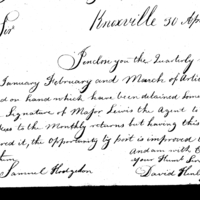 Knoxville 30 Apr
Sir
I enclose you the Quarterly
January February and March of Artic
d on hand which have been detained som
Signature of Major Lewis the Agent to
ues to the Monthly returns but having this
red it, the opportunity by post is improved t
tion
And am with
your Humb Ser
Samuel Hodgdon
David Henl